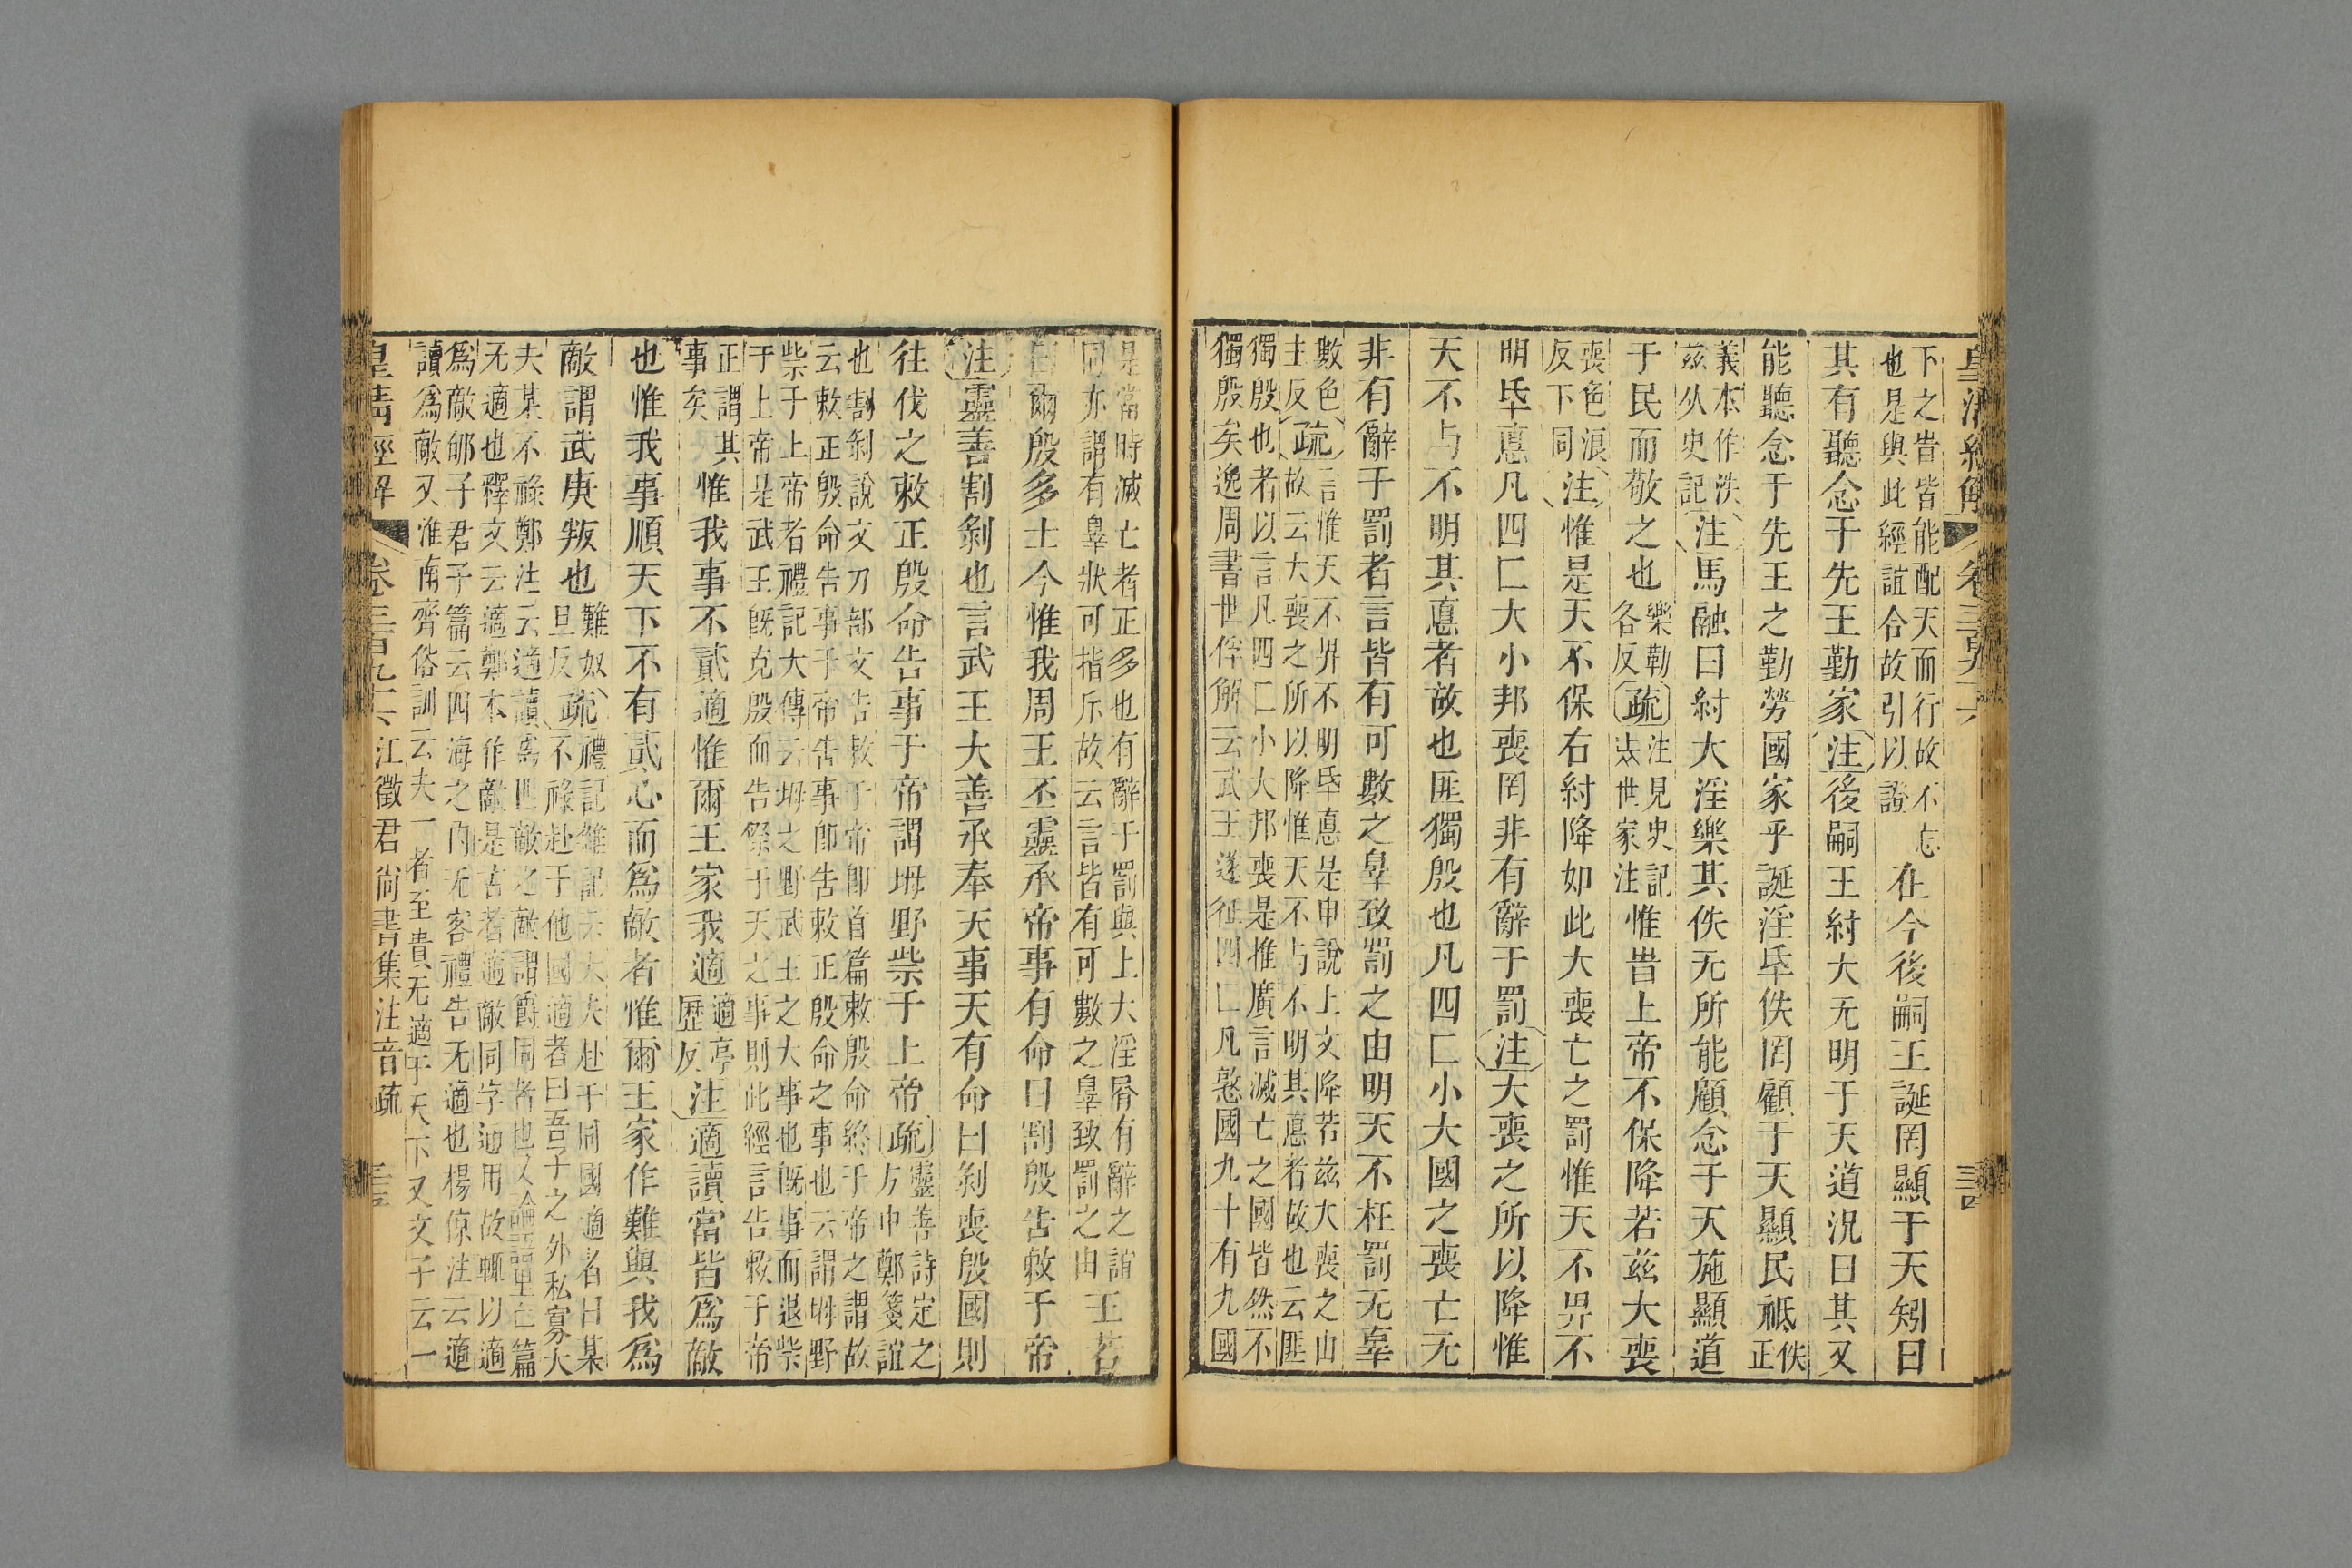 皇清經解 卷三百九十六
下之皆皆能配天而行故不忘
也是與此經誼合故引以證
在今後嗣王誕罔顯于天矧曰
其有聽念于先王勤家注後嗣王紂大无明于天道況曰其又
能聽念于先王之勤勞國家乎誕淫厥佚罔顧于天顯民祗佚
正
義本作泆
兹从史記
注馬融曰紂大淫樂其佚无所能顧念于天施顯道
于民而敬之也
樂勒
各反
疏
注見史記
𠫤世家注
惟昔上帝不保降若兹大喪
喪色浪
反下同
注惟是天不保右紂降如此大喪亡之罰惟天不畀不
明氒悳凡四匚大小邦喪罔非有辭于罰注大喪之所以降惟
天不与不明其悳者故也匪獨殷也凡四匚小大國之喪亡无
非有辭于罰者言皆有可數之辠致罰之由明天不枉罰无辠
數色
主反
疏
言惟天不畀不明氒悳是申說上文降若兹大喪之由
故云大喪之所以降惟天不与不明其悳者故也云匪
獨殷也者以言凡四匚小大邦喪是推廣言滅亡之國皆然不
獨殷矣逸周書世俘解云武王遂征四匚凡憝國九十有九國
是當時滅亡者正多也有辭于罰與上大淫屑有辭之誼
同亦謂有辠狀可指斥故云言皆有可數之辠致罰之由
王若
曰爾殷多士今惟我周王丕靈承帝事有命曰割殷告敕于帝
注靈善割剝也言武王大善承奉天事天有命曰剝喪殷國則
往伐之敕正殷命告事于帝謂坶野祡于上帝疏
靈善詩定之
方中鄭箋誼
也割剝說文刀部文告敕于帝卽首篇敕殷命終于帝之謂故
云敕正殷命告事于帝告事卽告敕正殷命之事也云謂坶野
祡于上帝者禮記大傳云坶之野武王之大事也旣事而退祡
于上帝是武王旣克殷而告祭于天之事則此經言告敕于帝
正謂其
事矣
惟我事不貳適惟爾王家我適
適亭
歷反
注適讀當皆爲敵
也惟我事順天下不有貳心而爲敵者惟爾王家作難與我爲
敵謂武庚叛也
難奴
旦反
疏
禮記雜記云大夫赴于同國適者曰某
不祿赴于他國適者曰吾子之外私寡大
夫某不祿鄭注云適讀爲匹敵之敵謂爵同者也又論語里仁篇
无適也釋文云適鄭本作敵是古者適敵同字通用故輒以適
爲敵郇子君子篇云四海之內无客禮告无適也楊倞注云適
讀爲敵又淮南齊俗訓云夫一者至貴无適于天下又文子云一
皇清經解 卷三百九十六 江徵君尙書集注音疏